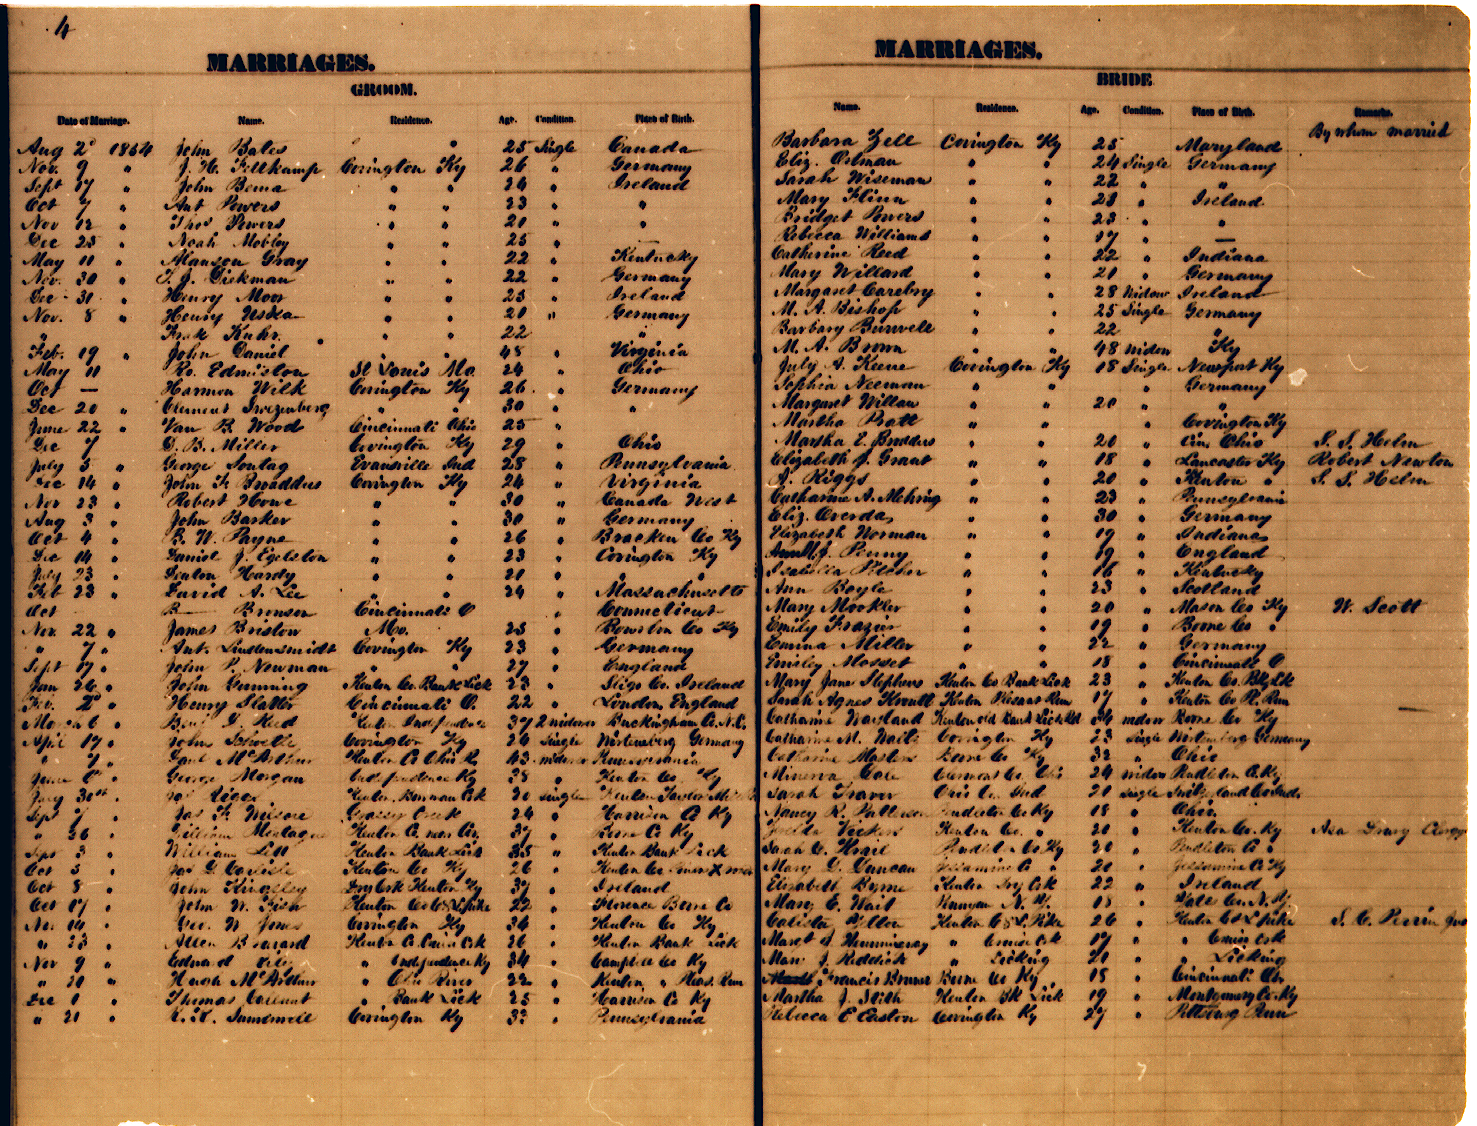 4
MARRIAGES. MARRIAGES.
GROOM. BRIDE
Date of Marriage. Name. Residence. Age. Condition. Place of Birth. Name. Residence. Age. Condition. Place of Birth. Remarks.
By whom married
Aug 2d 1854 John Bales " " 25 Single Canada Barbara Zell Covington Ky 25 Maryland
Nov. 9 " J. H. Feltkamp Covington Ky 26 " Germany Eliz. Oelman " " 24 Single Germany
Sept 17 " John Bema " " 24 " Ireland Sarah Wiseman " " 22 " "
Oct 7 " Ant Powers " " 23 " " Mary Flinn " " 28 " Ireland
Nov 12 " Thos Powers " " 20 " " Bridget Powers " " 23 " "
Dec 25 " Noah Mobley " " 25 " — Rebecca Williams " " 17 " —
May 11 " Alanson Gray " " 22 " Kentucky Catherine Reed " " 22 " Indiana
Nov. 30 " T. J. Dickman " " 22 " Germany Mary Willard " " 20 " Germany
Dec 31 " Henry Moor " " 23 " Ireland Margaret Carebry " " 28 Widow Ireland
Nov. 8 " Henry Uska " " 20 " Germany M. A. Bishop " " 25 Single Germany
" Frak Kuhr. " " 22 " Barbary Burwell " " 22 "
Feb. 19 " John Daniel " " 48 " Virginia M. A. Brown " " 48 Widow Ky
May 11 Ro. Edmiston St Louis Mo 24 " Ohio July A. Keene Covington Ky 18 Single Newport Ky
Oct — Harmon Wilk Covington Ky 26 " Germany Sophia Neeman " " " Germany
Dec 20 " Clement " " 30 " " Margaret Willan " " 20 " "
June 22 " Van B. Wood Cincinnati Ohio 25 " Martha Pratt " " " Covington Ky
Dec 7 D. B. Miller Covington Ky 29 " Ohio Martha E. Budders " " 20 " Cin. Ohio S. S. Helm
July 5 " George Sontag Evansville Ind 28 " Pennsylvania Elizabeth J. Grant " " 18 " Lancaster Ky Robert Newton
Dec 14 " John F. Broaddus Covington Ky 24 " Virginia A. Riggs " " 20 " Kenton " S. S. Helm
Nov 23 " Robert Howe " " 30 " Canada West Catharine A. Mehring " " 23 " Pennsylvania
Aug 3 " John Barker " " 30 " Germany Eliz. Overda " " 30 " Germany
Oct 4 " E. W. Payne " " 26 " Bracken Co Ky Elizabeth Norman " " 19 " Indiana
Dec 14 " Daniel J. Egelston " " 23 " Covington Ky J. Penny " " 19 " England
July 23 " Hardy " " 21 " " " Isabella Pitcher " " 16 " Kentucky
Feb 23 " David A. Lee " " 24 " Massachusetts Ann Boyle " " 23 " Scotland
Oct B— Bronson Cincinnati O " Connecticut Mary Mookler " " 20 " Mason Co Ky W. Scott
Nov. 22 " James Bristow Mo. 23 " Ky Emily Frazier " " 19 " Boone Co "
" 7 " Ant. Lindensmidt Covington Ky 23 " Germany Emma Miller " " 22 " Germany
Sept 17 " John P. Newman " " 27 " England Emisley Mosset " " 18 " Cincinnati O
Jan 26 " John Gunning Kenton Co. Bank Lick 23 " Sligo Co. Ireland Mary Jane Stephens Kenton Co Bank Lick 23 " Kenton Co. Bk Lk
Fev. 2d " Henry Slatter Cincinnati O. 22 " London England Sarah Agnes Kenton Pleasant Run 17 " Kenton Co Pl. Run
March 6 " Benj. D. Reed Kenton Independence 37 2 widower Buckingham Co. N.C. Catharine Wayland Kenton old Bank Lick Rd 34 widow Boone Co Ky
April 17 " John Covington Ky 24 Single Wirtemberg Germany Catharine M. Waltz Covington Ky 23 Single Wirtemberg Germany
" " McArthur Kenton Co 43 widower Pennsylvania Catharine Masters Boone Co Ky 32 " Ohio
June " George Morgan Independence Ky 38 " Kenton Co. Ky Minerva Cole Clermont Co. Ohio 24 widow Pendleton Co. Ky
July 30th " Kenton Bowman Crk 20 Single Kenton Sarah Traver Ohio Co. Ind 20 Single Switzerland Co Ind.
Sept 7 " Jas F. Wilson Grassy Creek 24 " Harrison Co Ky Nancy R. Patterson Pendleton Co Ky 18 " Ohio
" 26 " William Montague Kenton Co. near Cov. 37 " Boone Co Ky Vickers Kenton Co. " 20 " Kenton Co. Ky Asa Drury Clergy
3 " William Kenton Bank Lick 35 " Kenton Bank Lick Sarah C. Pendleton Co Ky 20 " Pendleton Co "
Oct 5 " Jas G. Carlisle Kenton Co Ky 26 " Kenton Co Mary D. Duncan Jessamine Co " 20 " Jessamine Co Ky
Oct 8 " John Kingsley Dry Crk Kenton Ky 37 " Ireland Elizabeth Byrne Kenton Dry Crk 22 " Ireland
Oct 17 " John W. Fish Kenton Co 22 " Florence Boone Co Mary E. Wait N. Y. 18 " Yate Co. N. Y.
Nov 14 " Geo. W. Jones Covington Ky 34 " Kenton Co Ky Calista Kenton C & L Pike 26 " Kenton C & L pike S. C. Perrin
" 23 " Allen Kenton Co. Cruis Crk 26 " Kenton Bank Lick Margt J. Hemmingray " Cruis Crk 17 " " Cruis Crk
Nov 9 " Edward " Independence Ky 34 " Campbell Co Ky Mary J. Reddick " Licking 21 " " Licking
" 20 " Hugh McArthur " Ohio River 22 " Kenton " Pleas. Run Francis Bruner Boone Co Ky 18 " Cincinnati Oh.
Dec 1 " Thomas " Bank Lick 25 " Harrison Co Ky Martha J. Stith Kenton Bk Lick 19 " Montgomery Co. Ky
" 21 " Covington Ky 32 " Pennsylvania Rebecca E Easton Covington Ky 27 " Pittsburg Penn